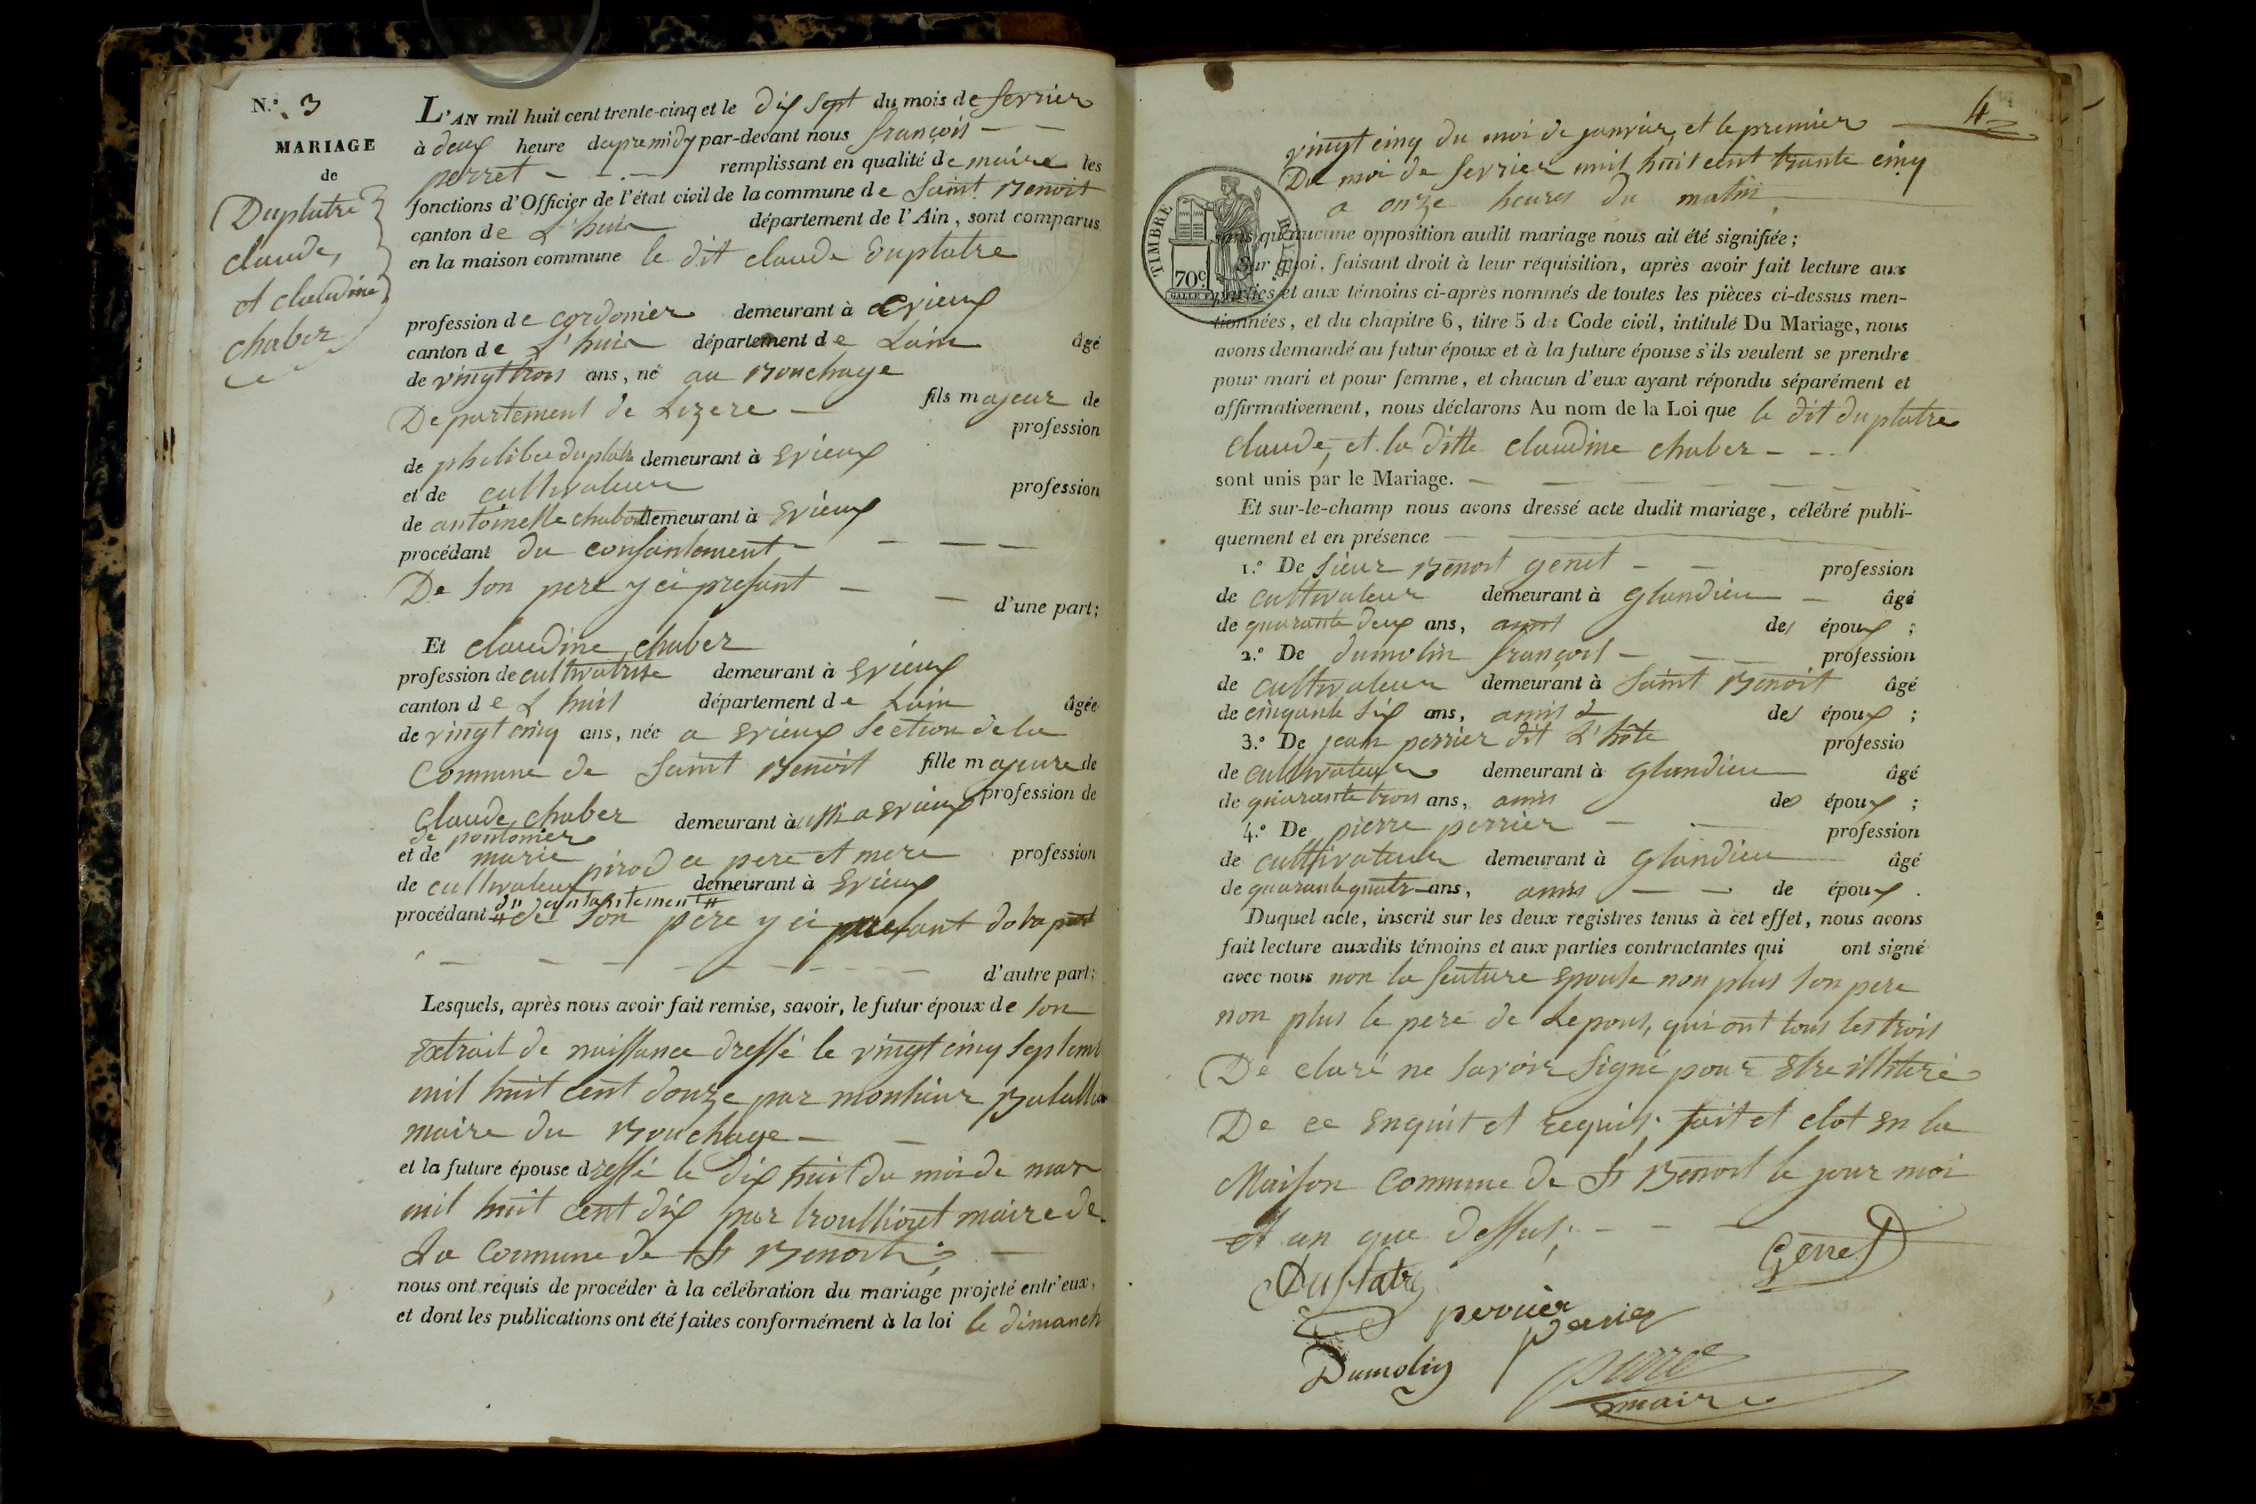 N.° 3
MARIAGE
de
Duplatre
claude,
et claudine
chaber
L'AN mil huit cent trente-cinq et le dix sept du mois de fevrier
à deux heure dapremidy par-devant nous françois
perret remplissant en qualité de maire les
fonctions d'Officier de l'état civil de la commune de Saint Benoit
canton de L'huis département de l'Ain, sont comparus
en la maison commune le dit claude duplatre
profession de cordonier demeurant à Evieux
canton de L'huis département de Lain âgé
de vingt trois ans, né au Bouchage
Departement de Lizere fils majeur de
profession
de philiber duplatre demeurant à Evieux
et de cultivateur profession
de antoinette chabod demeurant à Evieux
procédant du consantement
De son pere y ci presant
d'une part;
Et claudine chaber
profession de cultivatrise demeurant à Evieux
canton de L huis département de Lain âgée
de vingt cinq ans, née a Evieux section de la
Commune de Saint Benoit fille majeure de
profession de
claude chaber demeurant à aussi a Evieux
de pontonier
et de marie pirod ce pere et mere profession
de cultivateur demeurant à Evieux
du contantement
procédant de son pere y ci presant do la part
d'autre part;
Lesquels, après nous avoir fait remise, savoir, le futur époux de son
Extrait de naissance dressé le vingt cinq septemb
mil huit cent douze par monsieur
maire du Bouchage
et la future épouse dressé le dix huit du moi de mars
mil huit cent dix par trouillioret maire de
La Commune de St Benoit;
nous ont requis de procéder à la célébration du mariage projeté entr'eux,
et dont les publications ont été faites conformément à la loi le dimanch
4
vingt cinq du moi de janvier, et le premier
Du moi de fevrier mil huit cent trante cinq
a onze heures du matin
TIMBRE ROYAL
70c
sans qu'aucune opposition audit mariage nous ait été signifiée;
Sur quoi, faisant droit à leur réquisition, après avoir fait lecture aux
parties et aux témoins ci-après nommés de toutes les pièces ci-dessus men-
tionnées, et du chapitre 6, titre 5 du Code civil, intitulé Du Mariage, nous
avons demandé au futur époux et à la future épouse s'ils veulent se prendre
pour mari et pour femme, et chacun d'eux ayant répondu séparément et
affirmativement, nous déclarons Au nom de la Loi que le dit duplatre
claude, et la ditte claudine chaber
sont unis par le Mariage.
Et sur-le-champ nous avons dressé acte dudit mariage, célébré publi-
quement et en présence
1.° De sieur Benoit genet profession
de cultivateur demeurant à glandieu âgé
de quarante deux ans, amis des époux;
2.° De dumolin françois profession
de cultivateur demeurant à Saint Benoit âgé
de cinquante six ans, amis des époux;
3.° De jean perrier dit L'hôte professio
de cultivateur demeurant à glandieu âgé
de quarante trois ans, amis des époux;
4.° De pierre perrier profession
de cultivateur demeurant à glandieu âgé
de quarante quatr ans, amis de époux.
Duquel acte, inscrit sur les deux registres tenus à cet effet, nous avons
fait lecture auxdits témoins et aux parties contractantes qui ont signé
avec nous non la feuture Epouse non plus son pere
non plus le pere de Lepous, qui ont tous les trois
De claré ne savoir signé pour Etre illiteré
De ce Enquit et requis; fait et clot En la
Maison Commune de St Benoit le jour moi
et an que dessus;
Duplatre
Genet
perrier
perrier
Dumolin
maire